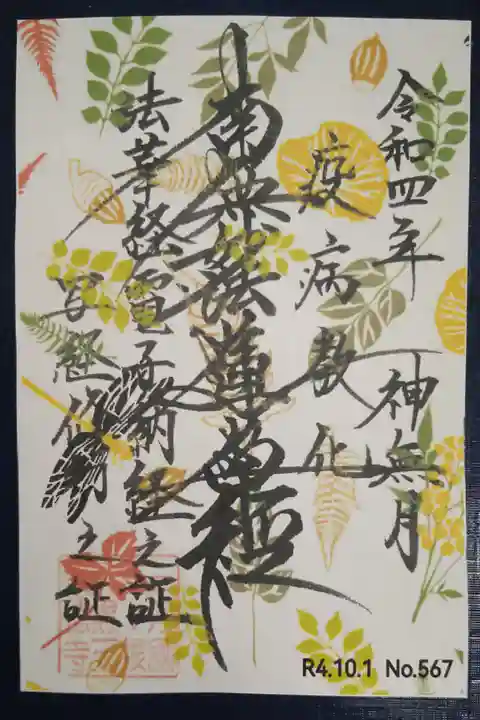 令和四年 神無月
疫病散化
南無妙法蓮華経
法華経電子納経之証
写経修行之証
R4.10.1 No.567